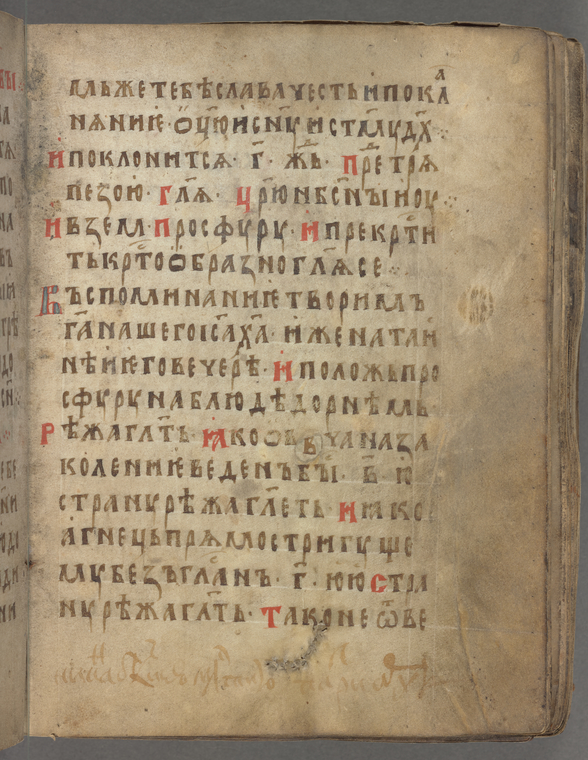 мъжетебѣславаѹестьипокл҇а
нѧниѥ ѻц҃юисн҃ѹист҃мѹдх҃
ипоклонитсѧ · г҃ · жⷣь · прⷣетрѧ
пезою · гл҃ѧ · цр҃юнбс҃ныиоу
ивземъ · просфѹрѹ · ипрекрⷭти
тькрⷭтоѻбразноглѧ҃се
въспоминаниѥтворимъ
га҃нашегоіс҃ах҃а · иженатаи
нѣиѥговечерѣ · иположьпро
сфѹрѹнаблюдѣдорнѣмь
рѣжагл҃ть · ꙗкоѻвчаназа
колениѥведенъбы҃ · в҃ · ю
странѹрѣжагл҃еть · иꙗко
агнецьпрѧмостригѹще
мѹбезъгл҃анъ · г҃ · ююстра
нѹрѣжагл҃ть · таконеѿве